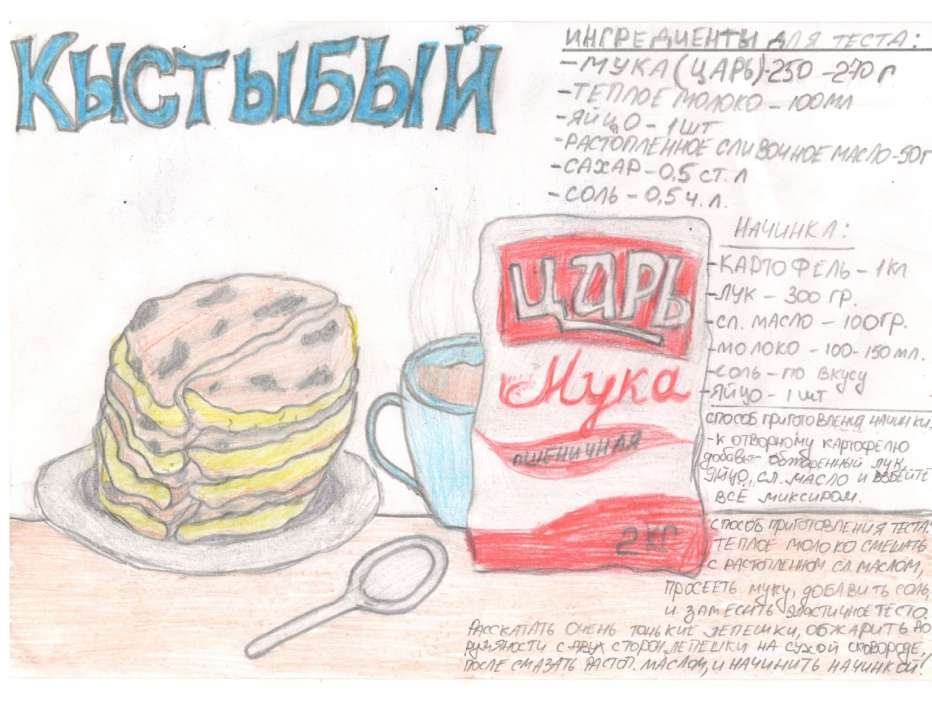 Кыстыбый
ИНГРЕДИЕНТЫ ДЛЯ ТЕСТА:
-МУКА (ЦАРЬ)-250-270 г
-ТЕПЛОЕ МОЛОКО-100 МЛ
-ЯЙЦО-1 ШТ
-РАСТОПЛЕННОЕ СЛИВОЧНОЕ МАСЛО-50г
-САХАР-0,5 СТ. Л
-СОЛЬ-0,5 Ч. Л.
НАЧИНКА:
-КАРТОФЕЛЬ-1 КГ
-ЛУК-300 ГР.
-СЛ. МАСЛО-100ГР.
-МОЛОКО-100-150 МЛ.
-СОЛЬ-ПО ВКУСУ
-ЯЙЦО-1 ШТ
СПОСОБ ПРИГОТОВЛЕНИЯ НАЧИНКИ.
-К ОТВОРНОМУ КАРТОФЕЛЮ
ДОБАВИТЬ ОБЖАРЕННЫЙ ЛУК,
ЯЙЦО, СЛ. МАСЛО И ВЗБЕЙТЕ
ВСЁ МИКСИРОМ.
СПОСОБ ПРИГОТОВЛЕНИЯ ТЕСТА:
ТЕПЛОЕ МОЛОКО СМЕШАТЬ
С РАСТОПЛЕННОМ СЛ МАСЛОМ,
ПРОСЕЕТЬ МУКУ, ДОБАВИТЬ СОЛЬ
И ЗАМЕСИТЬ ЭЛАСТИЧНОЕ ТЕСТО.
РАССКАТАТЬ ОЧЕНЬ ТОНЬКИЕ ЛЕПЕШКИ, ОБЖАРИТЬ ДО
РУМЯНОСТИ С ДВУХ СТОРОН ЛЕПЕШКИ НА СУХОЙ СКОВОРОДЕ,
ПОСЛЕ СМАЗАТЬ РАСТОП. МАСЛОМ, И НАЧИНИТЬ НАЧИНКОЙ!
ЦАРЬ
Мука
ПШЕНИЧНАЯ
2 КГ